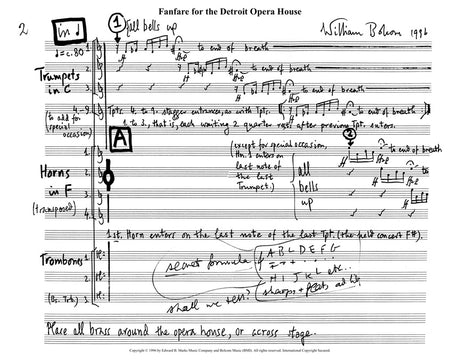 Fanfare for the Detroit Opera House
2
in ♩
♩=c.80
① all bells up
William Bolcom 1996
Trumpets in C
1
2
3
to end of breath
to end of breath
to end of breath
4.-9.
(to add for special occasion)
Tpts. 4. to 9. stagger entrances, as with Tpts.
1 to 3., that is, each waiting a quarter rest after previous Tpt. enters.
to end of breath
A
(except for special occasion,
Hn. 1 enters on
last note of
the last
Trumpet.)
②
to end of breath
Horns in F
(transposed)
1.
2.
3.
4.
all
bells
up
1st. Horn enters on the last note of the last Tpt. (the held concert F#).
Trombones
1.
2.
3.
(Bs. Tbn.)
secret formula
A B C D E F G
H I J K L etc.
sharps + flats ad lib
shall we tell?
Place all brass around the opera house, or across stage.
Copyright © 1996 by Edward B. Marks Music Company and Bolcom Music (BMI). All rights reserved. International Copyright Secured.